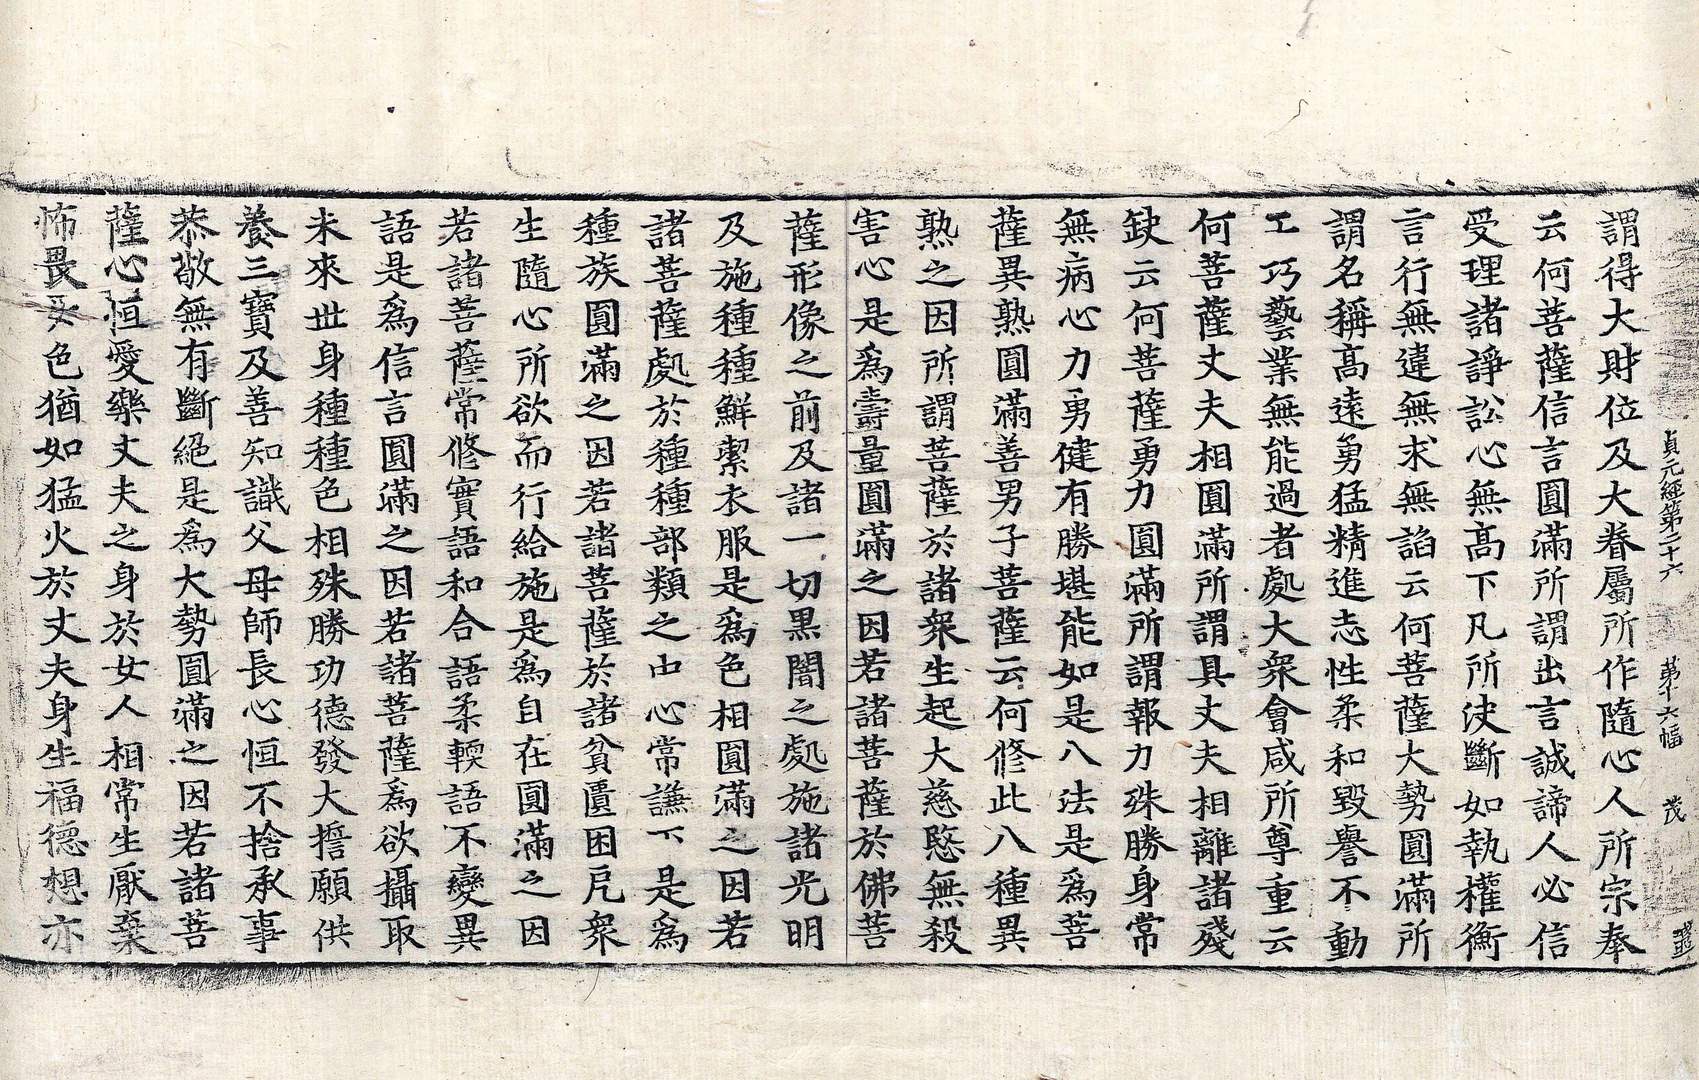 貞元經第二十六　第十六幅　茂
謂得大財位及大眷屬所作隨心人所宗奉
云何菩薩信言圓滿所謂出言誠諦人必信
受理諸諍訟心無高下凡所決斷如執權衡
言行無違無求無諂云何菩薩大勢圓滿所
謂名稱高遠勇猛精進志性柔和毀譽不動
工巧藝業無能過者處大眾會咸所尊重云
何菩薩丈夫相圓滿所謂具丈夫相離諸殘
缺云何菩薩勇力圓滿所謂報力殊勝身常
無病心力勇健有勝堪能如是八法是為菩
薩異熟圓滿善男子菩薩云何修此八種異
熟之因所謂菩薩於諸眾生起大慈愍無殺
害心是為壽量圓滿之因若諸菩薩於佛菩
薩形像之前及諸一切黑闇之處施諸光明
及施種種鮮潔衣服是為色相圓滿之因若
諸菩薩處於種種部類之中心常謙下是為
種族圓滿之因若諸菩薩於諸貧匱困戹眾
生隨心所欲而行給施是為自在圓滿之因
若諸菩薩常修實語和合語柔輭語不變異
語是為信言圓滿之因若諸菩薩為欲攝取
未來世身種種色相殊勝功德發大誓願供
養三寶及善知識父母師長心恒不捨承事
恭敬無有斷絕是為大勢圓滿之因若諸菩
薩心恒愛樂丈夫之身於女人相常生厭棄
怖畏女色猶如猛火於丈夫身生福德想亦